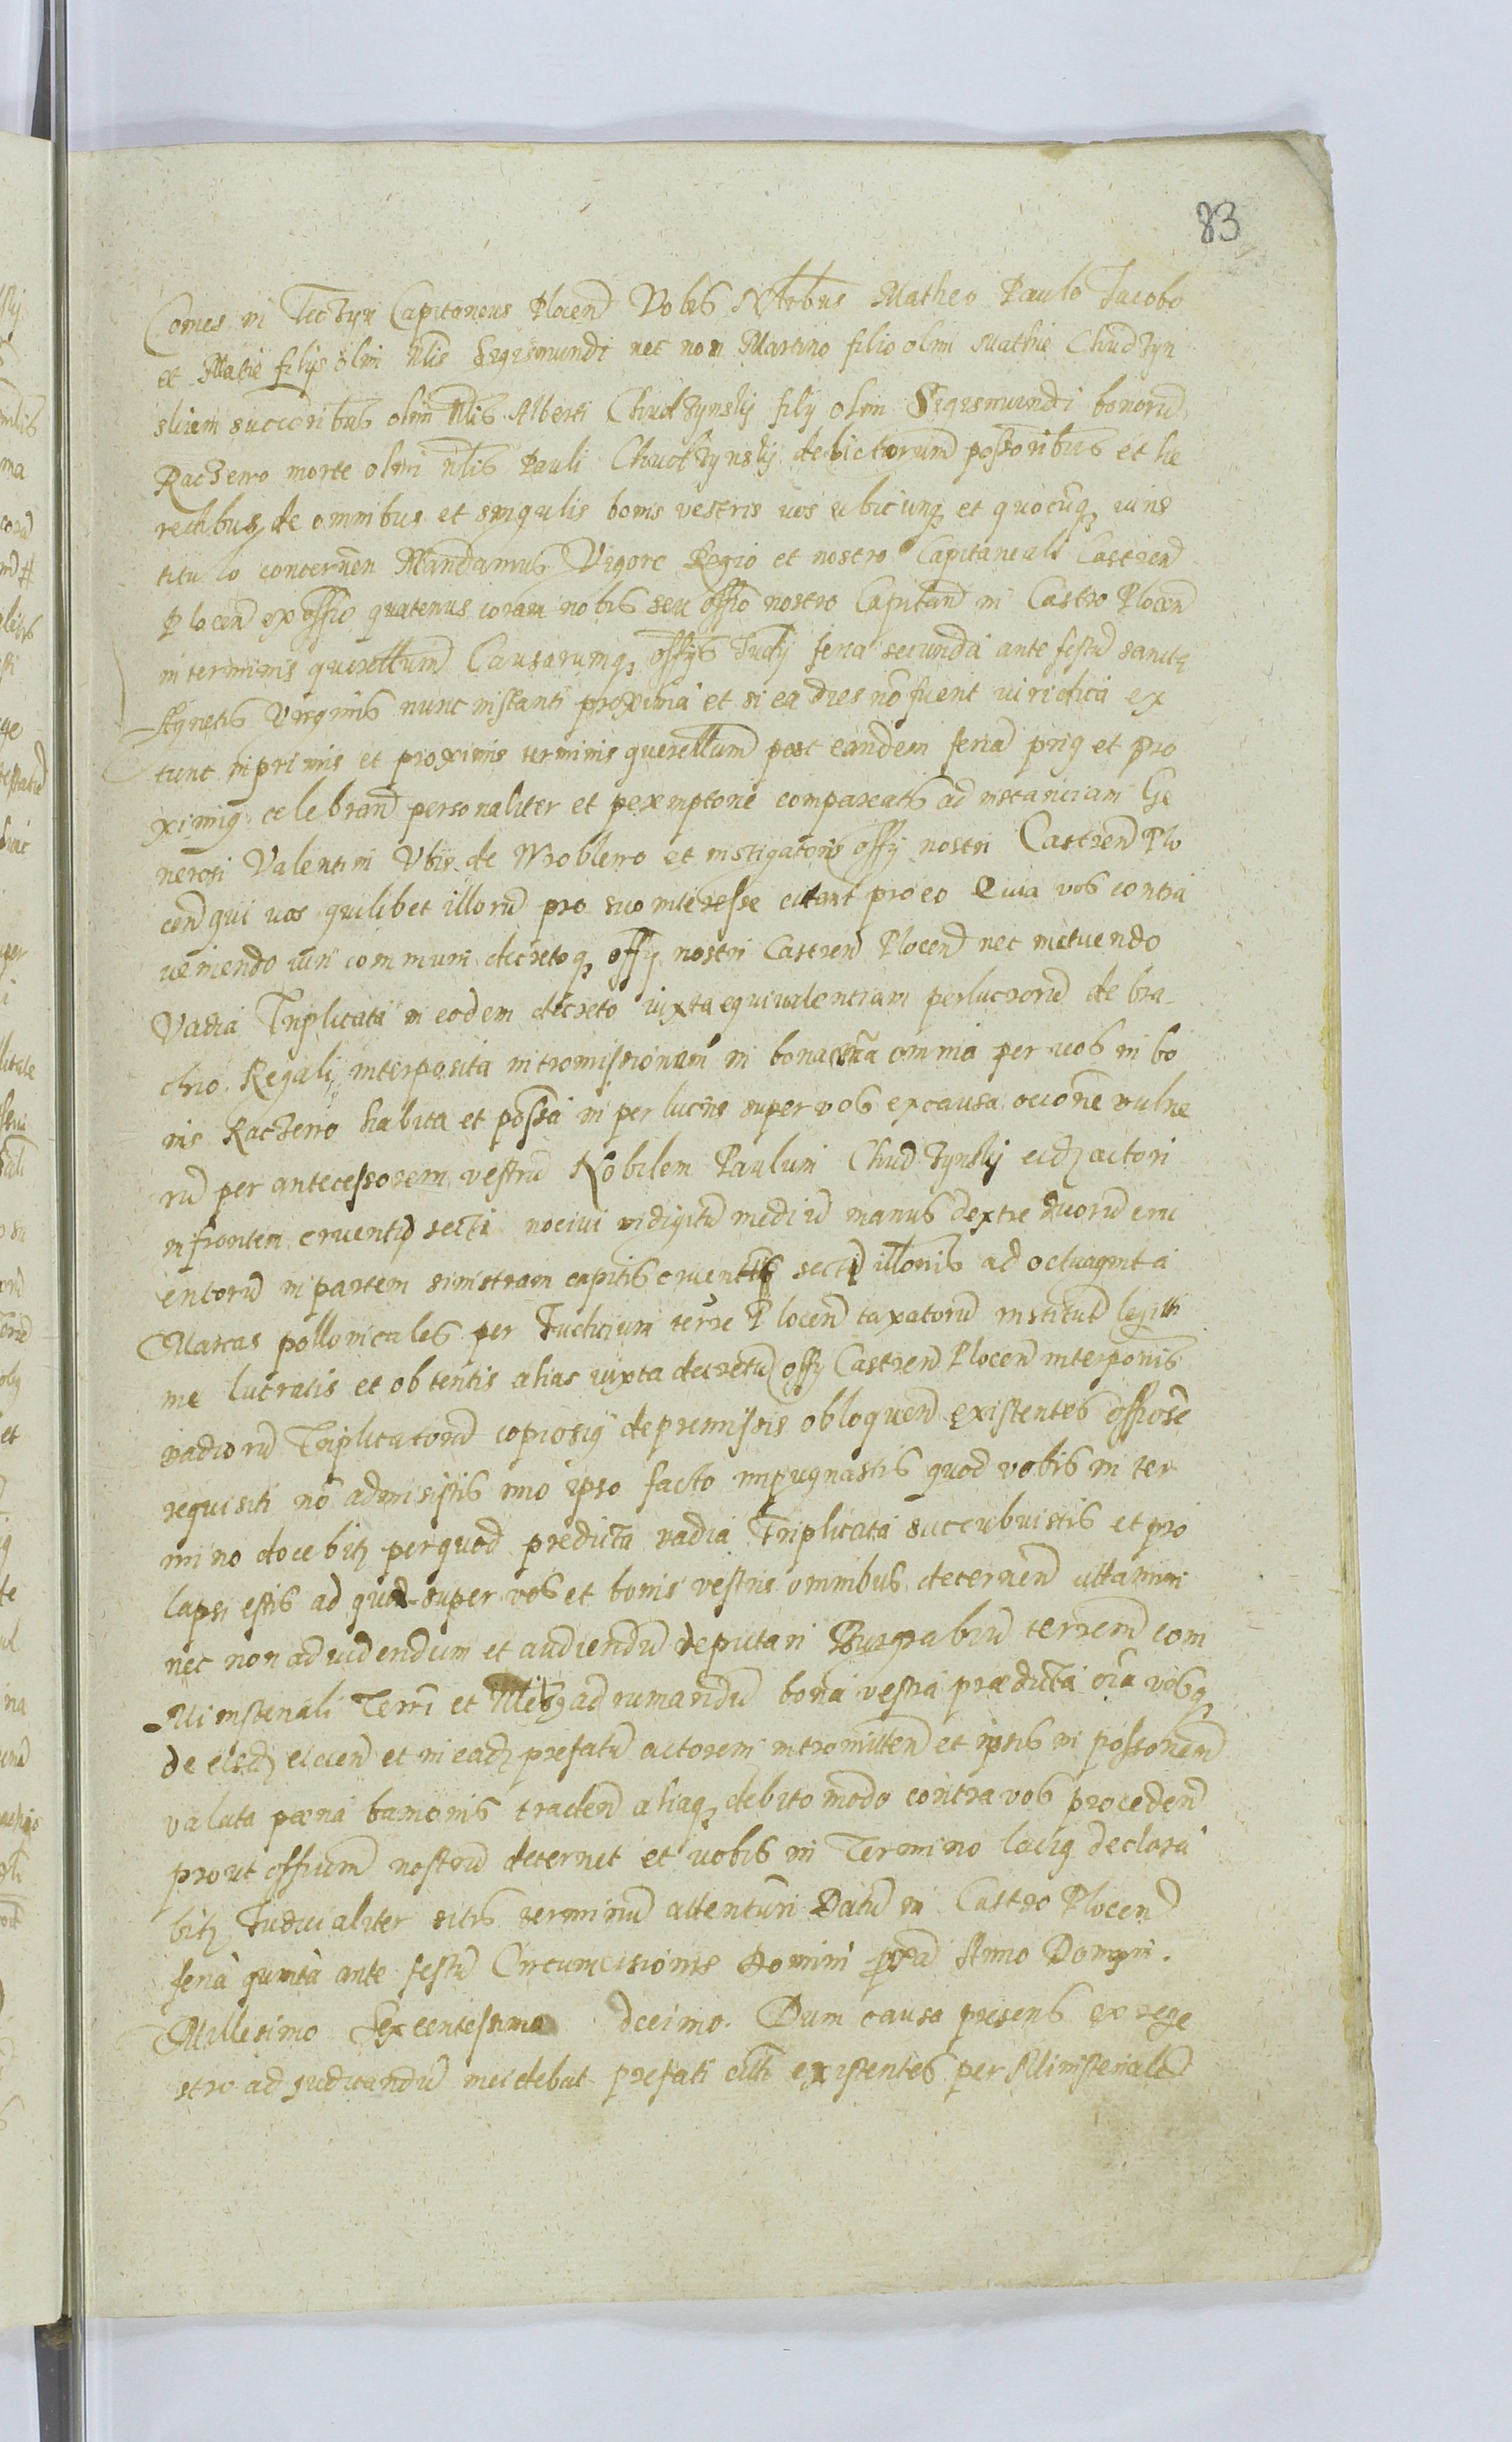 83
Comes in Teczyn Capitaneus Plocen Vobis Nlibus Matheo Paulo Jacobo
et Matie filys olim Nlis Sigismundi nec non Martino filio olim Mathie Chudzyn
skiem succoribus olim Nlis Alberti Chudzynsky fily olim Sigismundi bonoru
Raczewo morte olim nlis Pauli Chudzynsky debictorum possoribus et he
redibus de omnibus et singulis bonis vestris vos ubicunq et quocuq iuris
titulo concernen Mandamus Vigore Regio et nostro Capitaneali Castren
Plocen ex offio quatenus coram nobis seu offio nostro Capitan in Castro Plocen
in terminis querellum Causarumq offys Judy feria secunda ante festu sancte
Agnetis Virginis nunc instanti proxima et si ea dies no fuerit iuridica ex
tunc in primis et proximis terminis querellum post eandem feria prig et pro
ximig celebran personaliter et peremptorie compareatis ad instanciam Ge
nerosi Valentini Ubis de Wroblewo et instigatoris offy nostri Castren Plo
cen qui vos quilibet illoru pro suo interesse citant pro eo Quia vos contra
veniendo iuri communi decretoq offy nostri Castren Plocen nec metuendo
Vadia Triplicata in eodem decreto iuxta equivalentiam perlucroru de bra
chio Regali interposita intromissionem in bona vra omnia per vos in bo
nis Raczewo habita et possa in perlucris super vos ex causa occione vulne
ru per antecessorem vestru Nobilem Paulum Chudzynsky eidz actori
in frontem cruenti secti nocivi in digitu mediu manus dextre duoru cru
entoru in partem sinistram capitis cruentis secti illonis ad octuaginta
Marcas pollonicales per Judicium terre Plocen taxatoru institut legitti
me lucratis et obtentis alias iuxta decretu offy Castren Plocen interponis
vadioru Triplicatoru copiosig de premissis obloquen existentes offiose
requisiti no admisistis imo ipso facto impugnastis quod vobis in ter
mino docebitz per quod predicta vadia Triplicata succubuistis et pro
lapsi estis ad que super vos et bonis vestris omnibus decernen cittamini
nec non ad videndum et audiendu deputari Burgrabiu terren com
Ministeriali Terri et Nlibz ad rumandu bona vestra prædicta oia vosq
de eisdz eicien et in eadz prefatu actorem intromitten et ipsis in possonem
valata pœna banonis traden aliaq debito modo contra vos proceden
prout offium nostru decernet et vobis in Termino lacig declara
bitz Judicialiter sitis terminu attenturi Datu in Castro Plocen
feria quinta ante festu Circumcisionis Domini proxia Anno Domini.
Millesimo Sexcentesimo decimo. Dum causa presens ex rege
stro ad judicandu incidebat prefati citti existentes per Ministeriale